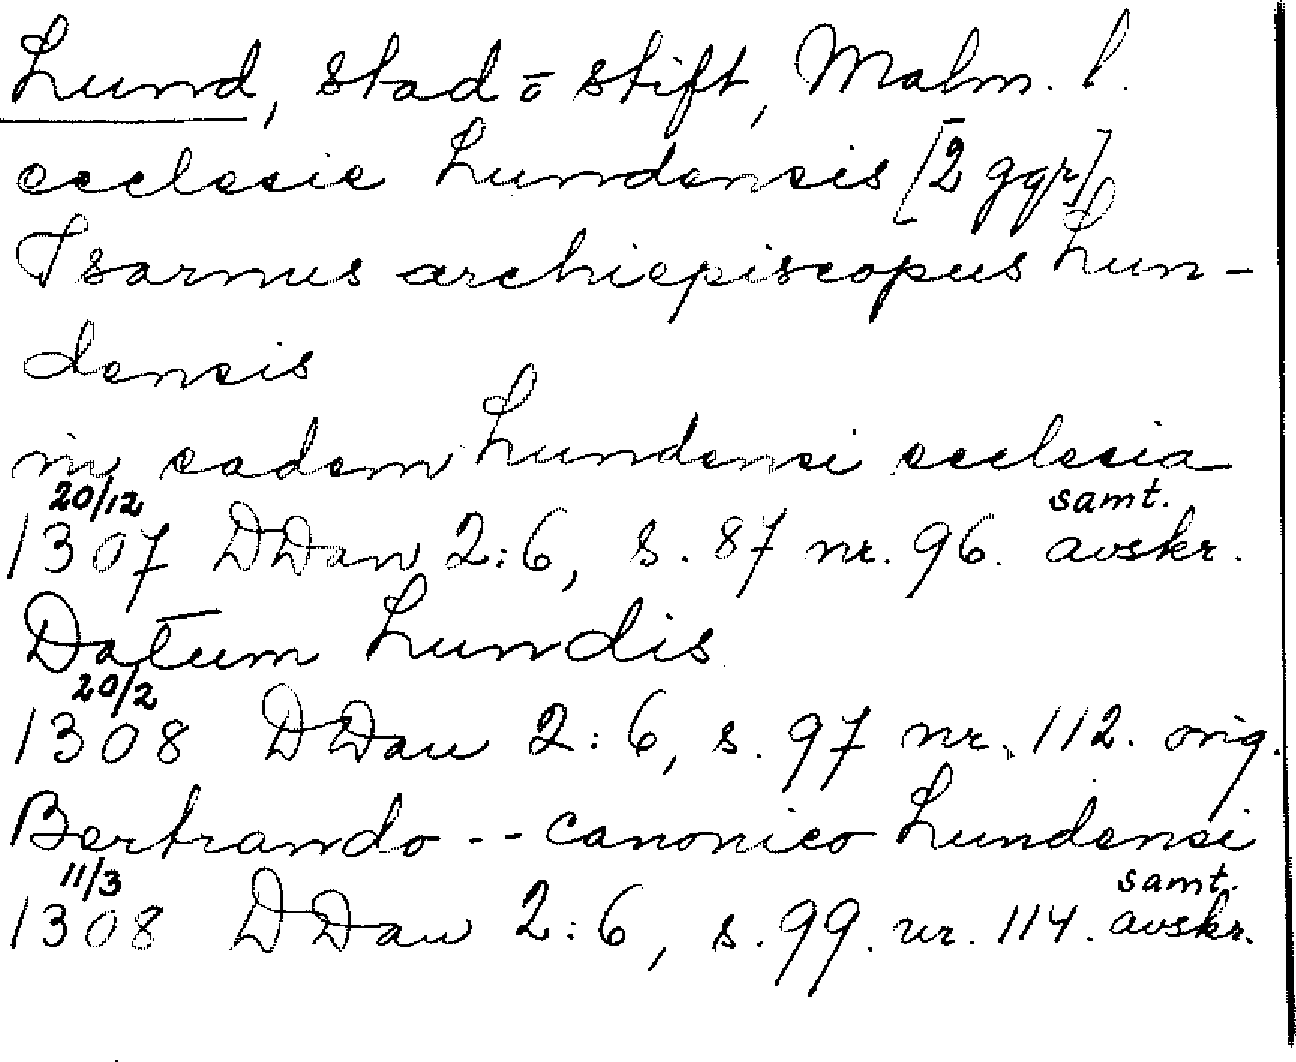 Lund, stad o stift, Malm. l.
ecclesie Lundensis [2 ggr]
Isarnus archiepiscopus Lun-
densis
in eadem Lundensi ecclesia
20/12 samt.
1307 DDan 2:6, s. 87 nr. 96. avskr.
Datum Lundis
20/2
1308 DDan 2:6, s. 97 nr. 112. orig.
Bertrando -- canonico Lundensi
11/3 samt.
1308 DDan 2:6, s. 99. nr. 114. avskr.